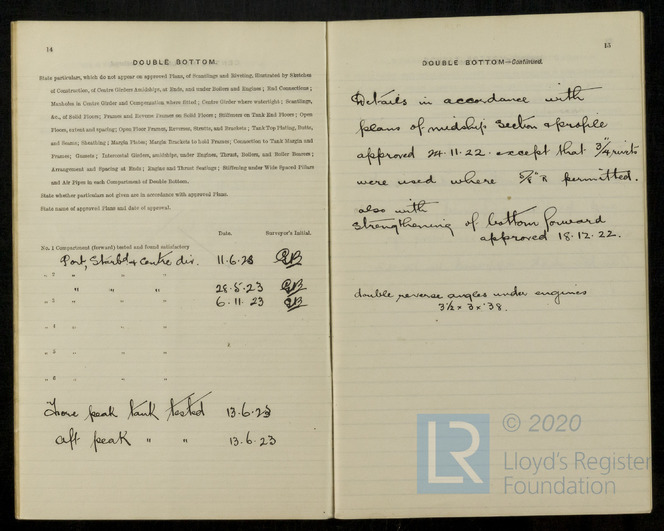 14
DOUBLE BOTTOM.
State particulars, which do not appear on approved Plans, of Scantlings and Riveting, illustrated by Sketches
of Construction, of Centre Girders Amidships, at Ends, and under Boilers and Engines; End Connections;
Manholes in Centre Girder and Compensation where fitted; Centre Girder where watertight; Scantlings,
&c., of Solid Floors; Frames and Reverse Frames on Solid Floors; Stiffeners on Tank End Floors; Open
Floors, extent and spacing; Open Floor Frames, Reverses, Struts, and Brackets; Tank Top Plating, Butts,
and Seams; Sheathing; Margin Plates; Margin Brackets to hold Frames; Connection to Tank Margin and
Frames; Gussets; Intercostal Girders, amidships, under Engines, Thrust, Boilers, and Boiler Bearers;
Arrangement and Spacing at Ends; Engine and Thrust Seatings; Stiffening under Wide Spaced Pillars
and Air Pipes in each Compartment of Double Bottom.
State whether particulars not given are in accordance with approved Plans.
State name of approved Plan and date of approval.
Date. Surveyor's Initial.
No. 1 Compartment (forward) tested and found satisfactory
Port, Starbd & Centre div. 11.6.23
„ 2 „ „ „
" " " 28.5.23
„ 3 „ „ „ 6.11.23
„ 4 „ „ „
„ 5 „ „ „
„ 6 „ „ „
Fore peak tank tested 13.6.23
aft peak " " 13.6.23
15
DOUBLE BOTTOM—Continued.
Details in accordance with
plans of midship section & profile
approved 24.11.22. except that 3/4" rivets
were used where 5/8" R permitted.
also with
strengthening of bottom forward
approved 18.12.22.
double reverse angles under engines
3½ x 3 x .38.
© 2020
LR
Lloyd's Register
Foundation